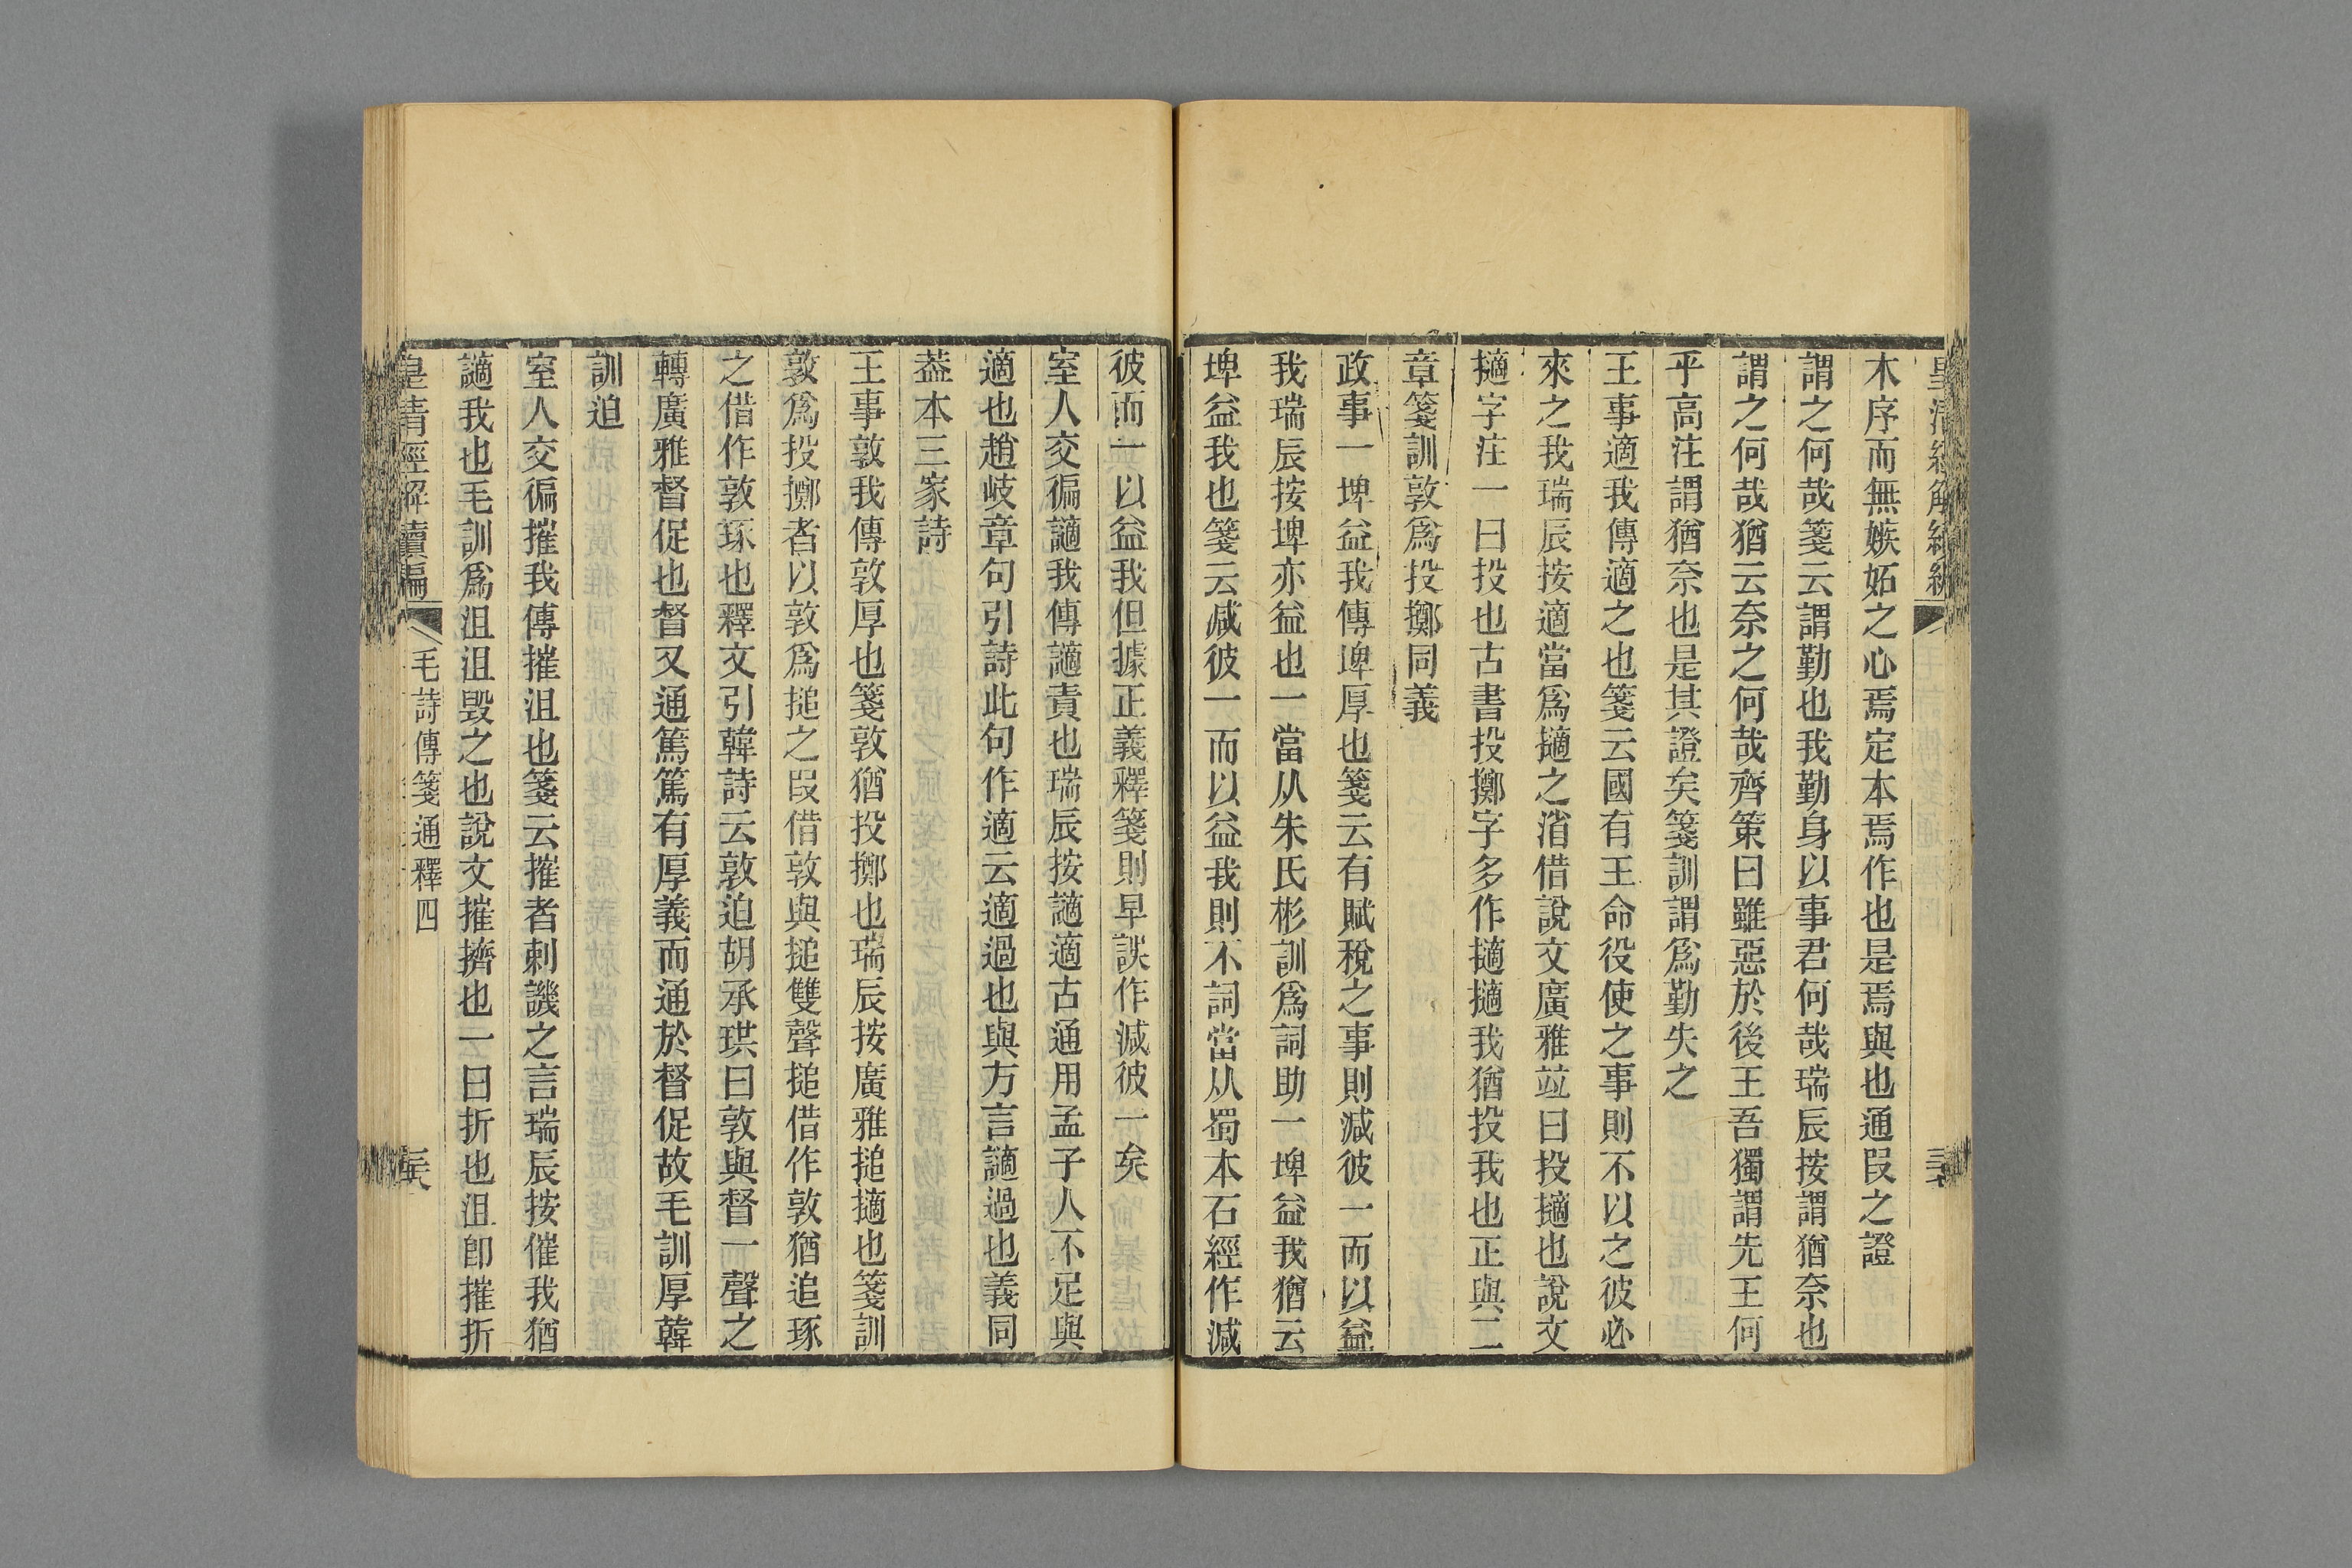 皇清經解續編
木序而無嫉妬之心焉定本焉作也是焉與也通叚之證
謂之何哉箋云謂勤也我勤身以事君何哉瑞辰按謂猶奈也
謂之何哉猶云奈之何哉齊策曰雖惡於後王吾獨謂先王何
乎高注謂猶奈也是其證矣箋訓謂爲勤失之
王事適我傳適之也箋云國有王命役使之事則不以之彼必
來之我瑞辰按適當爲擿之消借說文廣雅竝曰投擿也說文
擿字注一曰投也古書投擲字多作擿擿我猶投我也正與二
章箋訓敦爲投擲同義
政事一埤益我傳埤厚也箋云有賦稅之事則減彼一而以益
我瑞辰按埤亦益也一當从朱氏彬訓爲詞助一埤益我猶云
埤益我也箋云減彼一而以益我則不詞當从蜀本石經作減
彼而一以益我但據正義釋箋則早誤作減彼一矣
室人交徧讁我傳讁責也瑞辰按讁適古通用孟子人不足與
適也趙岐章句引詩此句作適云適過也與方言讁過也義同
葢本三家詩
王事敦我傳敦厚也箋敦猶投擲也瑞辰按廣雅搥擿也箋訓
敦爲投擲者以敦爲搥之叚借敦與搥雙聲搥借作敦猶追琢
之借作敦琢也釋文引韓詩云敦迫胡承珙曰敦與督一聲之
轉廣雅督促也督又通篤篤有厚義而通於督促故毛訓厚韓
訓迫
室人交徧摧我傳摧沮也箋云摧者刺譏之言瑞辰按催我猶
讁我也毛訓爲沮沮毀之也說文摧擠也一曰折也沮卽摧折
皇清經解續編
毛詩傳箋通釋四